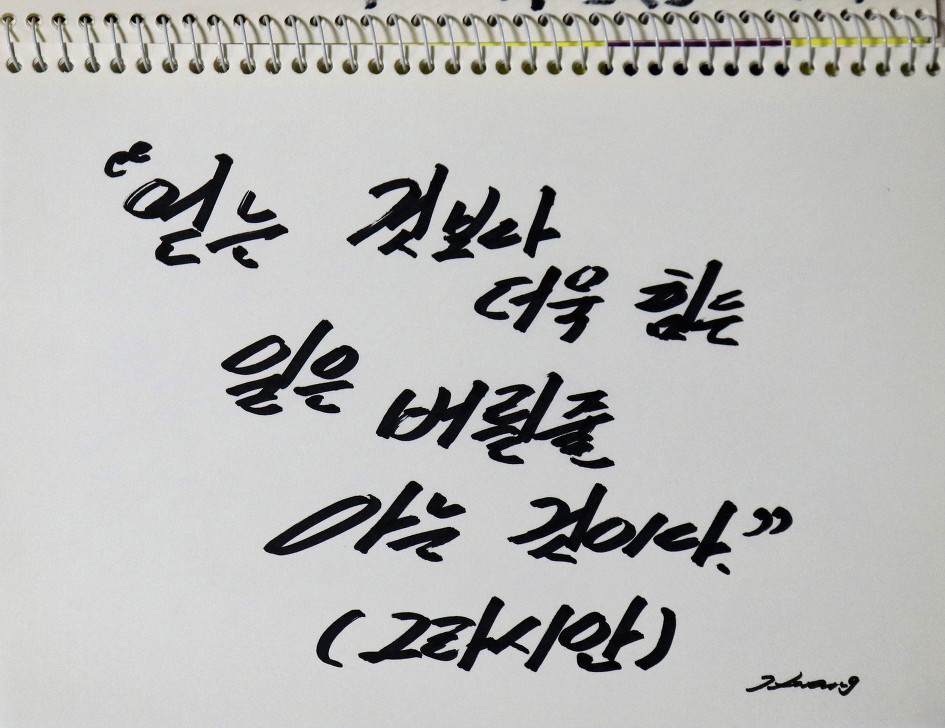 “얻는 것보다
더욱 힘든
일은 버릴줄
아는 것이다.”
(그라시안)